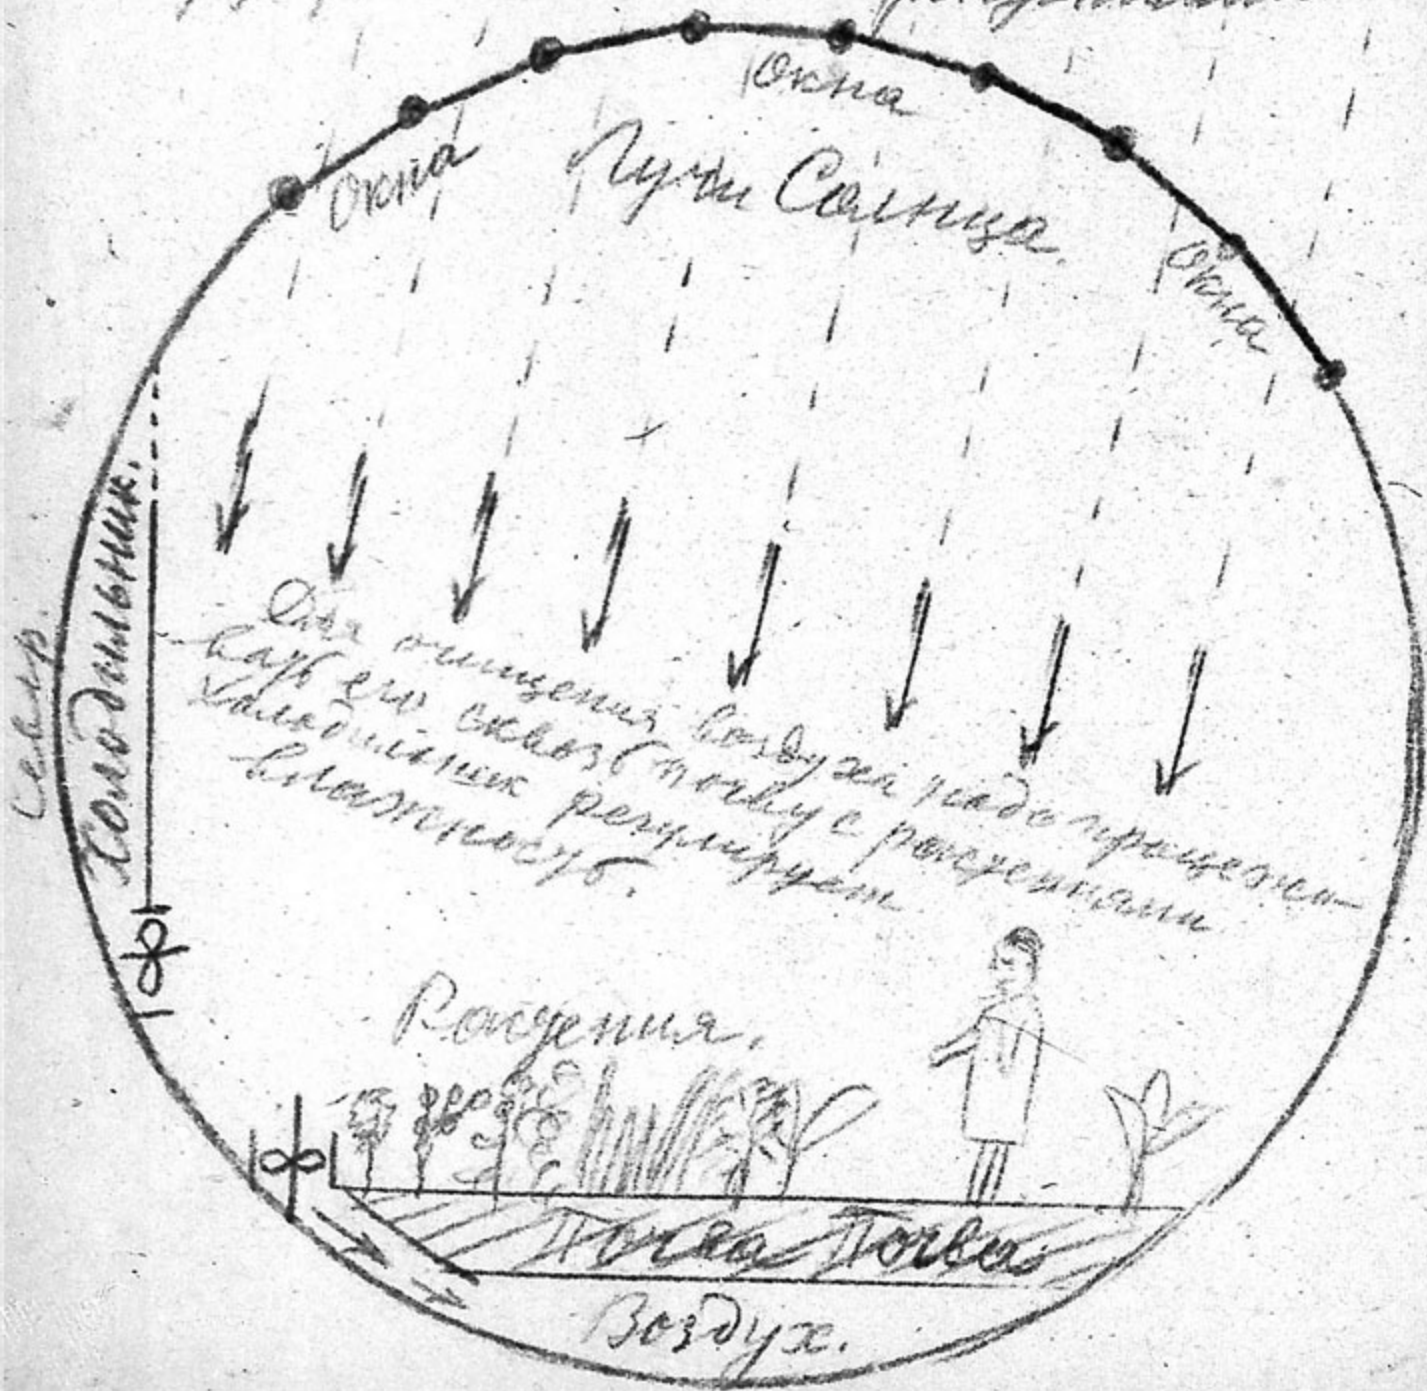 Окна
Окна
Лучи Солнца.
Окна
Холодильник.
Север.
Для очищения воздуха надо процежи-
вать его сквозь почву с растениями
Холодильник регулирует
влажность.
Растения.
Почва Почва
Воздух.